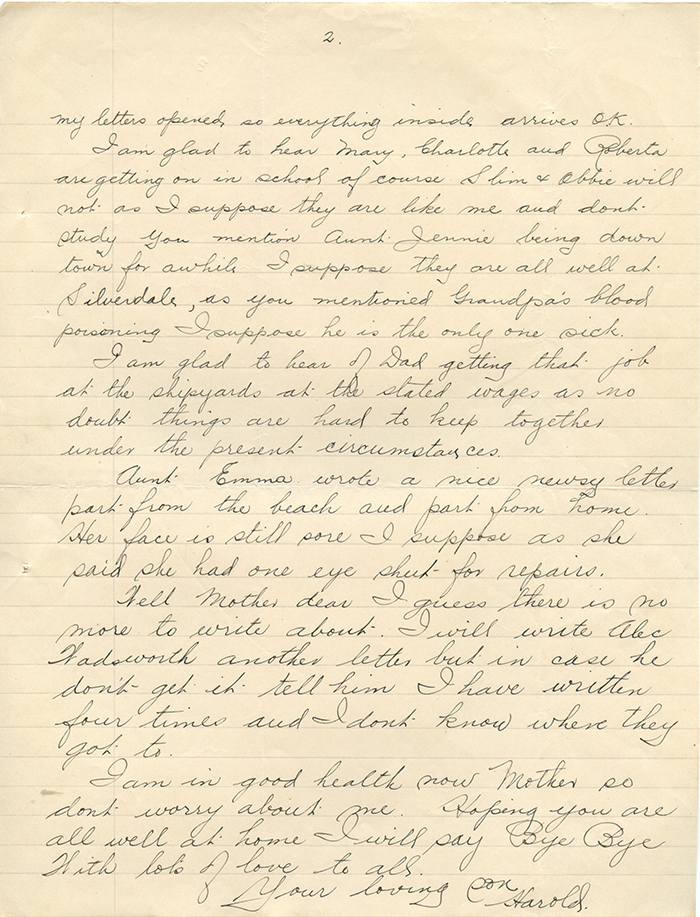 2.
my letters opened, so everything inside, arrives OK.
I am glad to hear Mary, Charlotte and Roberta
are getting on in school of course Slim & Obbie will
not as I suppose they are like me and dont
study You mention Aunt Jennie being down
town for awhile I suppose they are all well at
Silverdale, as you mentioned Grandpa's blood
poisoning I suppose he is the only one sick.
I am glad to hear of Dad getting that job
at the shipyards at the stated wages as no
doubt things are hard to keep together
under the present circumstances.
Aunt Emma wrote a nice newsy letter
part from the beach and part from home.
Her face is still sore I suppose as she
said she had one eye shut for repairs.
Well Mother dear I guess there is no
more to write about. I will write Alec
Wadsworth another letter but in case he
don't get it tell him I have written
four times and I dont know where they
got to.
I am in good health now Mother so
dont worry about me. Hoping you are
all well at home I will say Bye Bye
With lots of love to all.
Your loving son
Harold.